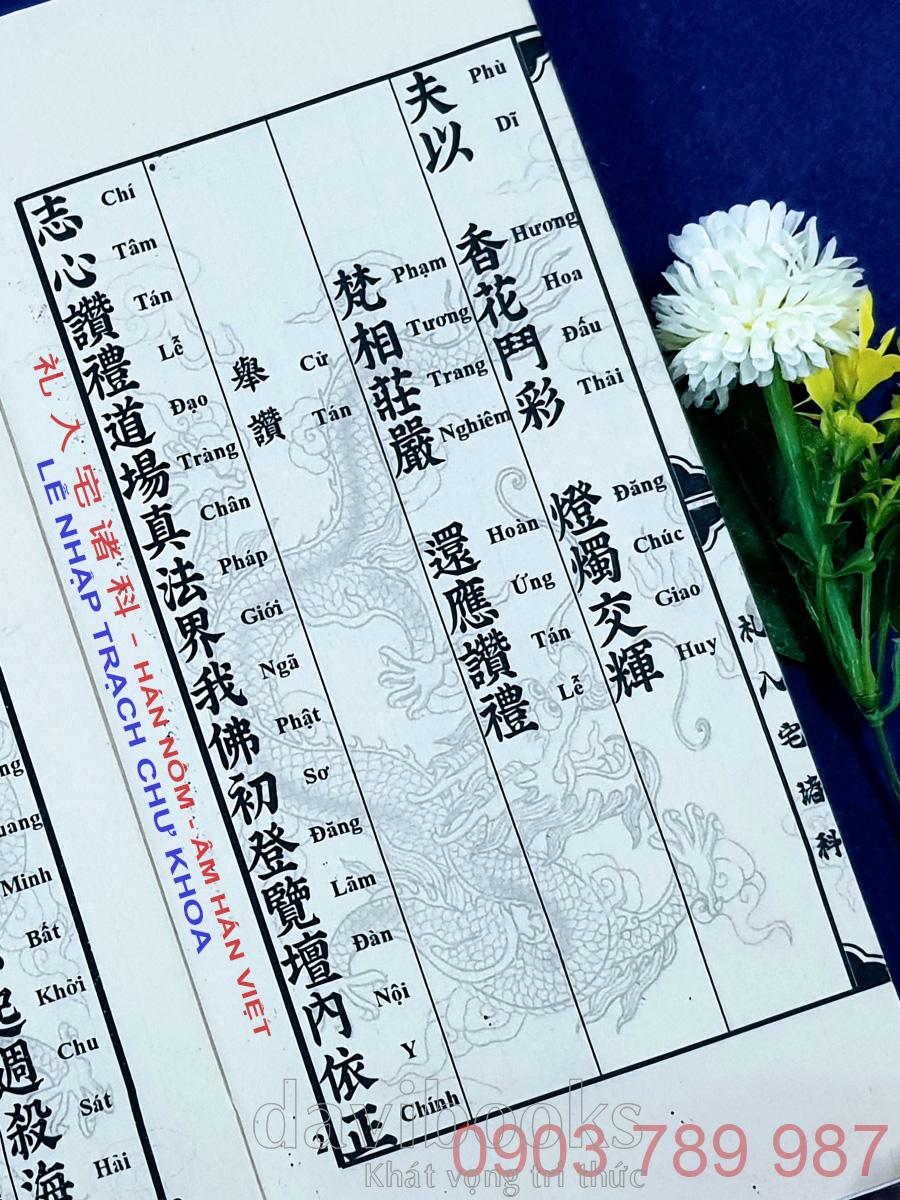 夫以 香花鬥彩 燈燭交輝
Phù Dĩ Hương Hoa Đấu Thải Đăng Chúc Giao Huy
梵相莊嚴 還應讚禮
Phạm Tương Trang Nghiêm Hoàn Ứng Tán Lễ
舉讚
Cử Tán
志心讚禮道場真法界我佛初登覽壇內依正
Chí Tâm Tán Lễ Đạo Tràng Chân Pháp Giới Ngã Phật Sơ Đăng Lãm Đàn Nội Y Chính
札入宅诸科
2
礼入宅诸科 - HÁN NÔM - ÂM HÁN VIỆT
LỄ NHẬP TRẠCH CHƯ KHOA
週殺海
Minh Bất Khởi Chu Sát Hải
davibooks
Khát vọng tri thức
0903 789 987